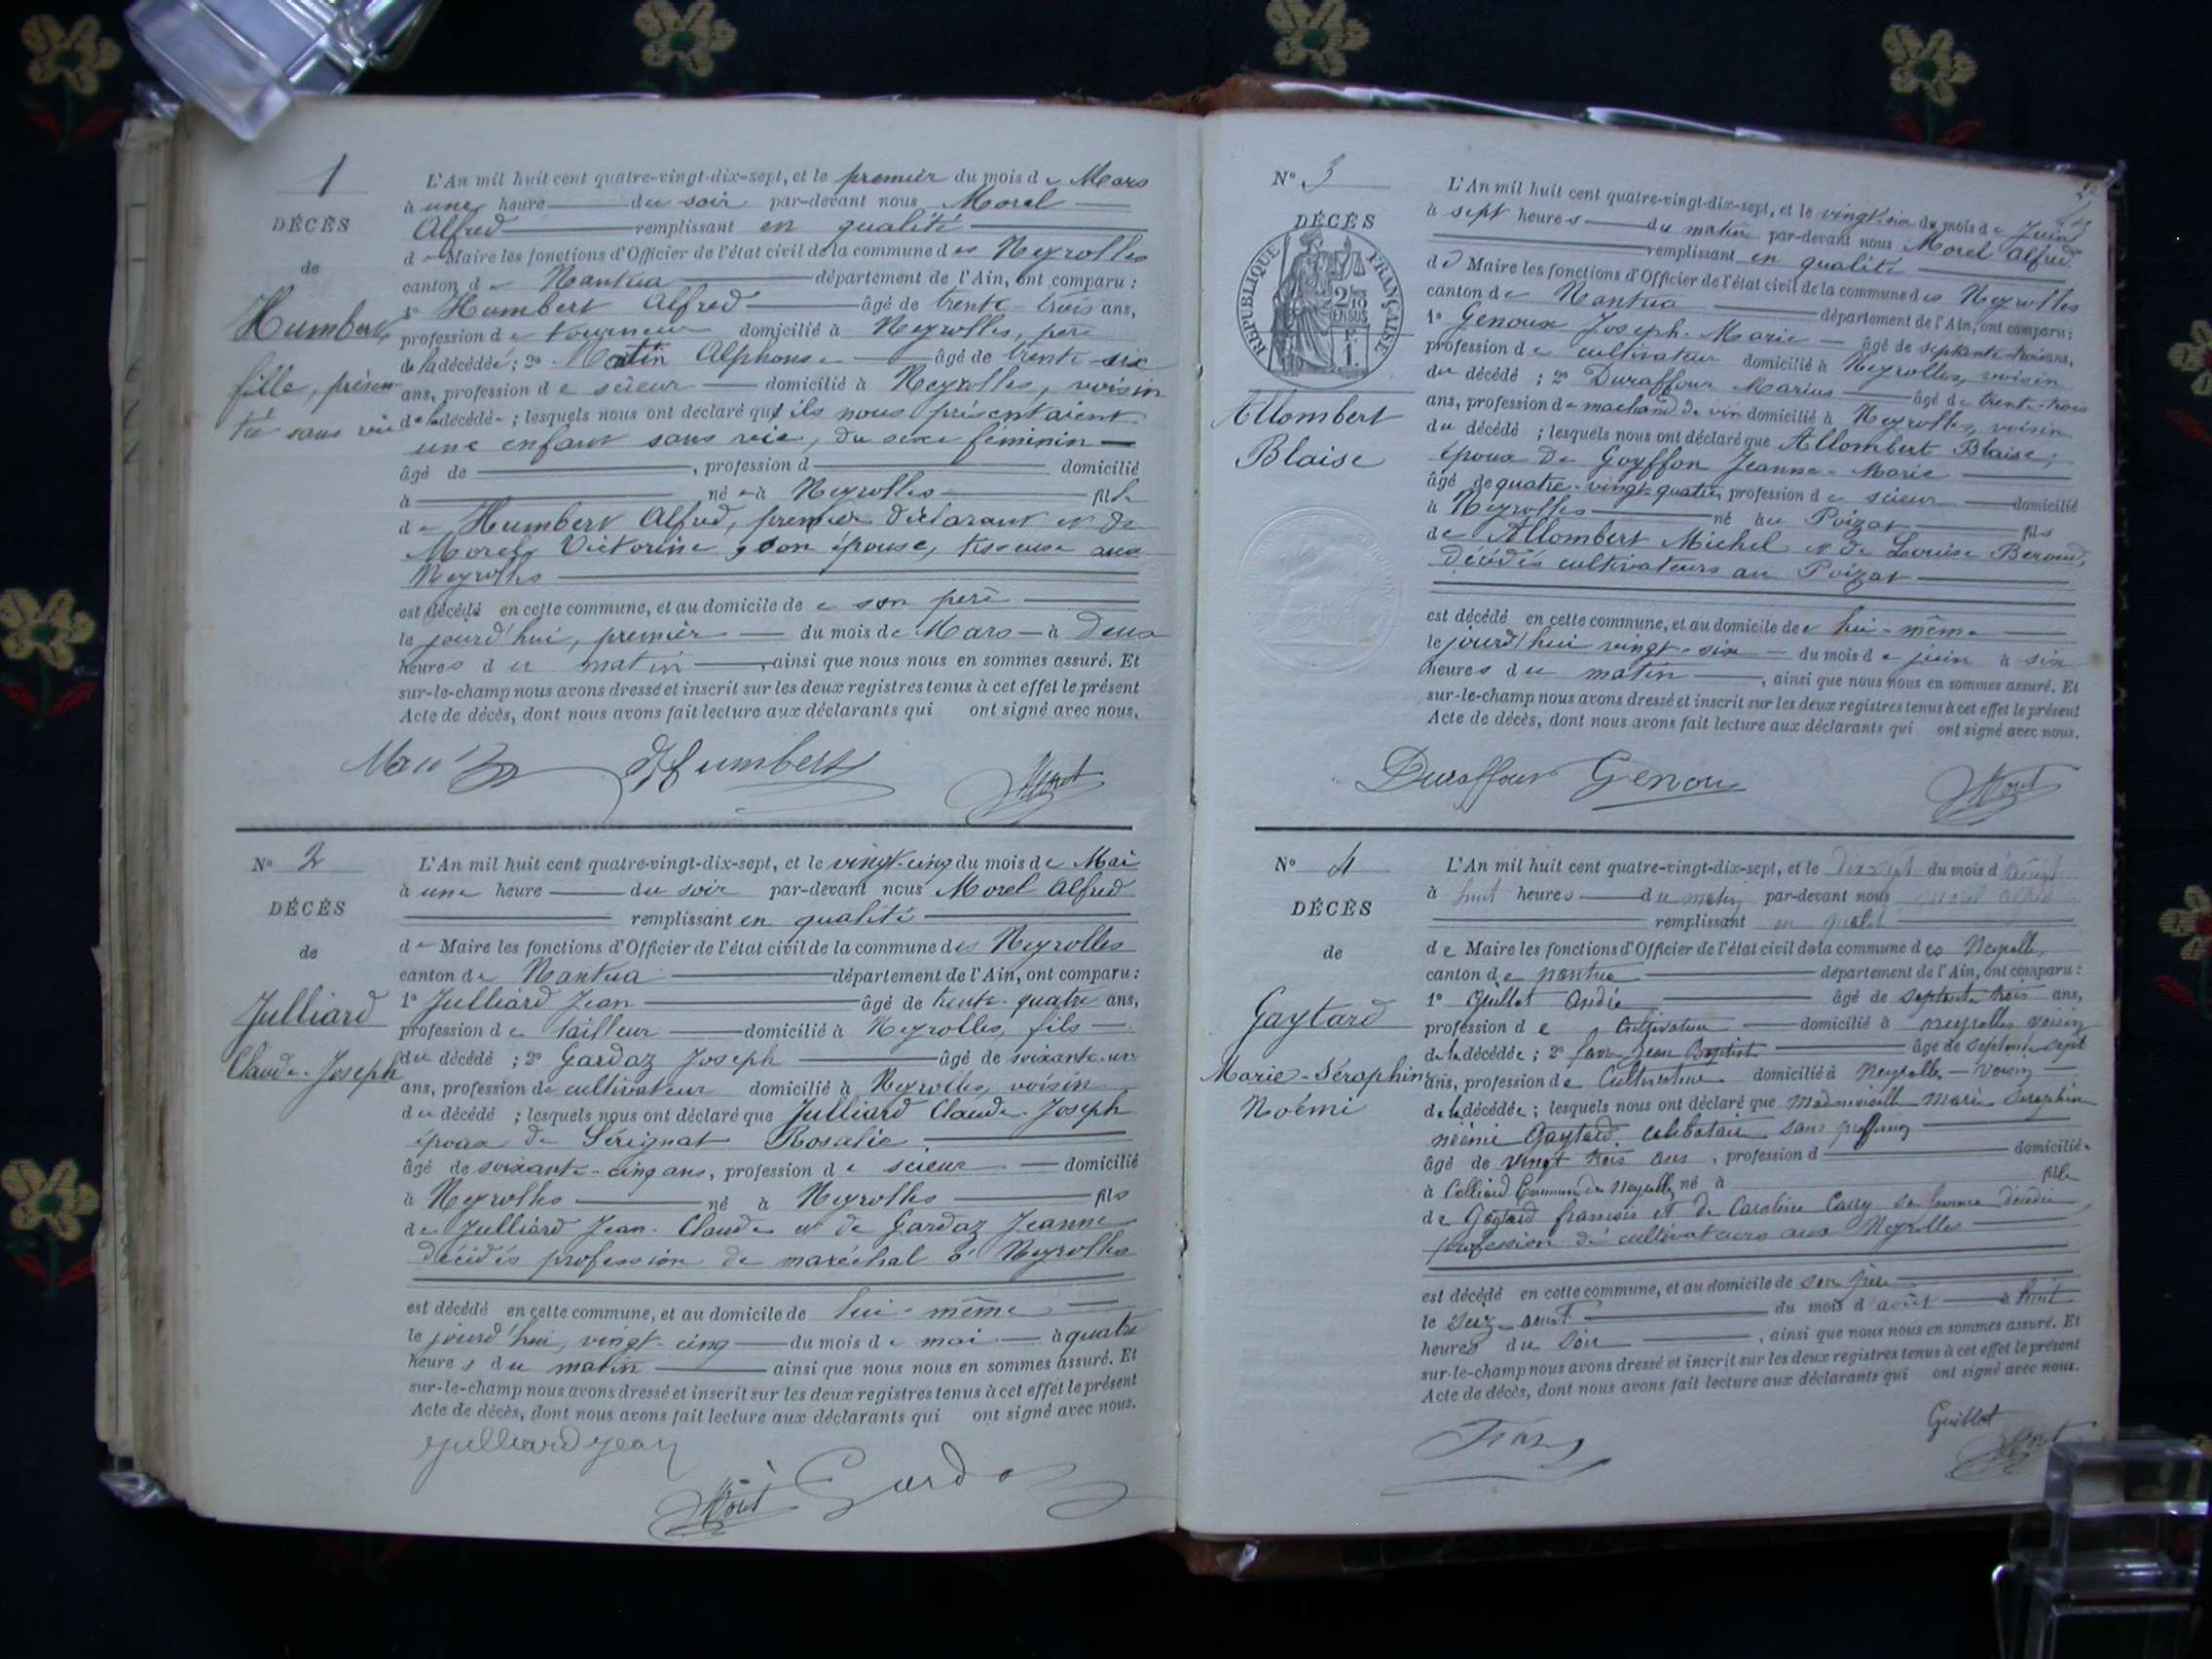 1
DÉCÈS
de
Humbert
fille, présen
té sans vie
L'An mil huit cent quatre-vingt-dix-sept, et le premier du mois de Mars
à une heure du soir par-devant nous Morel
Alfred remplissant en qualité
de Maire les fonctions d'Officier de l'état civil de la commune des Neyrolles
canton de Nantua département de l'Ain, ont comparu :
1° Humbert Alfred âgé de trente-trois ans,
profession de tourneur domicilié à Neyrolles, père
de la décédée ; 2° Martin Alphonse âgé de trente-six
ans, profession de scieur domicilié à Neyrolles, voisin
de la décédée ; lesquels nous ont déclaré qu'ils nous présentaient
une enfant sans vie, du sexe féminin
âgé de , profession d domicilié
à né à Neyrolles fille
de Humbert Alfred, premier déclarant et de
Morel Victorine, son épouse, tisseuse aux
Neyrolles
est décédé en cette commune, et au domicile de son père
le jourd'hui, premier du mois de Mars à deux
heures du matin , ainsi que nous nous en sommes assuré. Et
sur-le-champ nous avons dressé et inscrit sur les deux registres tenus à cet effet le présent
Acte de décès, dont nous avons fait lecture aux déclarants qui ont signé avec nous.
Humbert Morel
N° 2
DÉCÈS
de
Julliard
Claude-Joseph
L'An mil huit cent quatre-vingt-dix-sept, et le vingt-cinq du mois de Mai
à une heure du soir par-devant nous Morel Alfred
remplissant en qualité
de Maire les fonctions d'Officier de l'état civil de la commune des Neyrolles
canton de Nantua département de l'Ain, ont comparu :
1° Julliard Jean âgé de trente-quatre ans,
profession de tailleur domicilié à Neyrolles, fils
du décédé ; 2° Gardaz Joseph âgé de soixante-un
ans, profession de cultivateur domicilié à Neyrolles, voisin
du décédé ; lesquels nous ont déclaré que Julliard Claude-Joseph
époux de Sérignat Rosalie
âgé de soixante-cinq ans, profession de scieur domicilié
à Neyrolles né à Neyrolles fils
de Julliard Jean-Claude et de Gardaz Jeanne
décédés profession de maréchal à Neyrolles
est décédé en cette commune, et au domicile de lui-même
le jourd'hui, vingt-cinq du mois de mai à quatre
heures du matin ainsi que nous nous en sommes assuré. Et
sur-le-champ nous avons dressé et inscrit sur les deux registres tenus à cet effet le présent
Acte de décès, dont nous avons fait lecture aux déclarants qui ont signé avec nous.
Julliard Jean
Morel Gardaz
N° 3
DÉCÈS
RÉPUBLIQUE FRANÇAISE
Allombert
Blaise
L'An mil huit cent quatre-vingt-dix-sept, et le vingt-six du mois de Juin
à sept heures du matin par-devant nous Morel Alfred
remplissant en qualité
de Maire les fonctions d'Officier de l'état civil de la commune des Neyrolles
canton de Nantua département de l'Ain, ont comparu :
1° Genoux Joseph-Marie âgé de septante-trois ans,
profession de cultivateur domicilié à Neyrolles, voisin
du décédé ; 2° Duraffour Marius âgé de trente-trois
ans, profession de machand de vin domicilié à Neyrolles, voisin
du décédé ; lesquels nous ont déclaré que Allombert Blaise,
époux de Goyffon Jeanne-Marie
âgé de quatre-vingt-quatre, profession de scieur domicilié
à Neyrolles né au Poizat fils
de Allombert Michel et de Louise Beroud,
décédés cultivateurs au Poizat
est décédé en cette commune, et au domicile de lui-même
le jourd'hui vingt-six du mois de juin à six
heures du matin , ainsi que nous nous en sommes assuré. Et
sur-le-champ nous avons dressé et inscrit sur les deux registres tenus à cet effet le présent
Acte de décès, dont nous avons fait lecture aux déclarants qui ont signé avec nous.
Duraffour Genoux Morel
N° 4
DÉCÈS
de
Gaytard
Marie-Séraphine
Noémi
L'An mil huit cent quatre-vingt-dix-sept, et le dix sept du mois d'août
à huit heures du matin par-devant nous Morel Alfred
remplissant en qualité
de Maire les fonctions d'Officier de l'état civil de la commune des Neyrolles
canton de nantua département de l'Ain, ont comparu :
1° Guillot André âgé de septante trois ans,
profession de Cultivateur domicilié à neyrolles voisin
de la décédée ; 2° Jean Baptiste âgé de septante sept
ans, profession de Cultivateur domicilié à Neyrolles voisin
de la décédée ; lesquels nous ont déclaré que Mademoiselle Marie Séraphine
noëmie Gaytard, celibataire sans profession
âgé de vingt trois ans , profession d domicilié
à Colliard Commune des Neyrolles né à fille
de Gaytard françois et de Caroline Carry sa femme décédée
profession de cultivateurs aux Neyrolles
est décédé en cette commune, et au domicile de son père
le seize aout du mois d'août à huit
heures du soir , ainsi que nous nous en sommes assuré. Et
sur-le-champ nous avons dressé et inscrit sur les deux registres tenus à cet effet le présent
Acte de décès, dont nous avons fait lecture aux déclarants qui ont signé avec nous.
Guillot
Morel